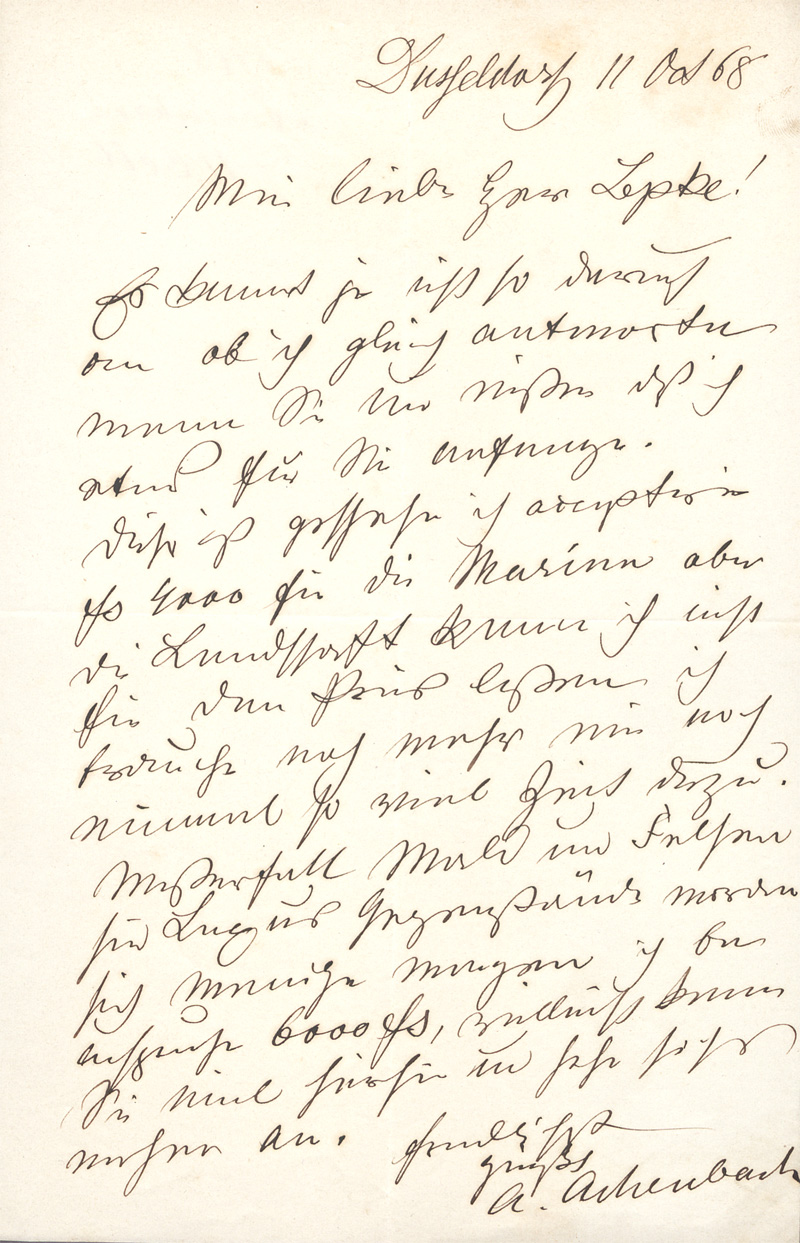 Düsseldorf 11 Oct 68
Mein lieber Herr Lepke!
Es kommt ja nicht so darauf
an ob ich gleich antworte
wenn Sie nur wißen daß ich
etwas für Sie anfange.
Dieß ist geschehen ich acceptire
fs 4000 für die Marine aber
die Landschaft kann ich nicht
für den Preis laßen ich
brauche noch mehr wie noch
einmal so viel Zeit dazu.
Waßerfall Wald und Felsen
sind Luxus Gegenstände werden
sich wenige wagen ich
6000 fs, vielleicht kommen
Sie mal hierher und sehen
an. freundlichst
grüßt
A. Achenbach